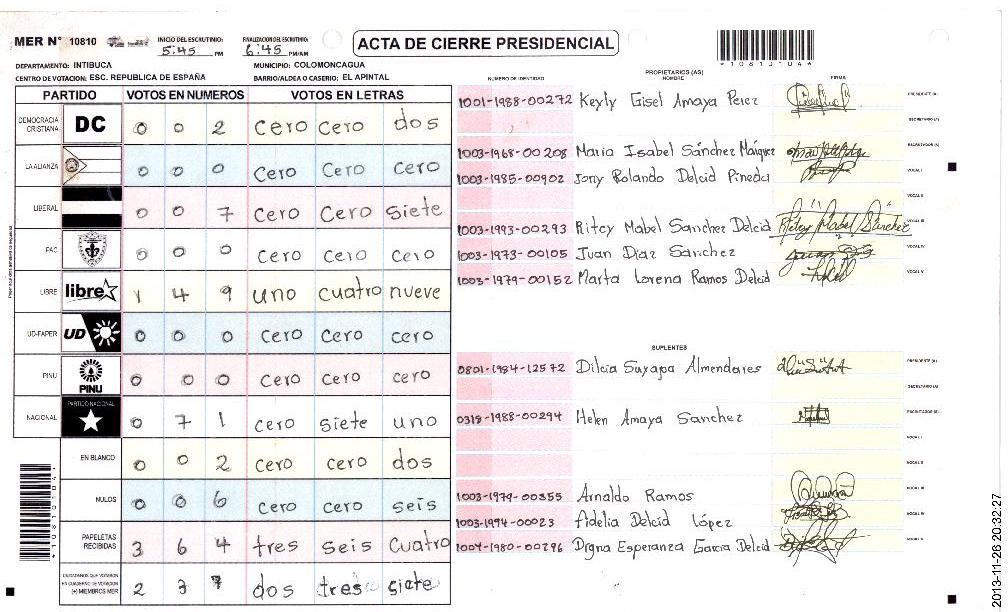 MER N° 10810
INICIO DEL ESCRUTINIO: 5:45 PM
FINALIZACION DEL ESCRUTINIO: 6:45 PM/AM
ACTA DE CIERRE PRESIDENCIAL
*10810104*
DEPARTAMENTO: INTIBUCA
MUNICIPIO: COLOMONCAGUA
CENTRO DE VOTACION: ESC. REPUBLICA DE ESPAÑA
BARRIO/ALDEA O CASERIO: EL APINTAL
PARTIDO VOTOS EN NUMEROS VOTOS EN LETRAS
DEMOCRACIA CRISTIANA DC 0 0 2 cero cero dos
LA ALIANZA 0 0 0 cero cero cero
LIBERAL 0 0 7 cero cero siete
PAC 0 0 0 cero cero cero
LIBRE libre 1 4 9 uno cuatro nueve
UD-FAPER UD 0 0 0 cero cero cero
PINU PINU 0 0 0 cero cero cero
NACIONAL PARTIDO NACIONAL 0 7 1 cero siete uno
EN BLANCO 0 0 2 cero cero dos
NULOS 0 0 6 cero cero seis
PAPELETAS RECIBIDAS 3 6 4 tres seis cuatro
CIUDADANOS QUE VOTARON EN CUADERNO DE VOTACION (+) MIEMBROS MER 2 3 7 dos tres siete
PROPIETARIOS (AS)
NUMERO DE IDENTIDAD NOMBRE FIRMA
1001-1988-00272 Keyly Gisel Amaya Perez PRESIDENTE (A)
SECRETARIO (A)
1003-1968-00208 Maria Isabel Sánchez Máiquez ESCRUTADOR (A)
1003-1985-00902 Jony Rolando Delcid Pineda VOCAL I
VOCAL II
1003-1993-00293 Ritcy Mabel Sanchez Delcid Ritcy Mabel Sánchez VOCAL III
1003-1973-00105 Juan Diaz Sanchez VOCAL IV
1003-1979-00152 Marta Lorena Ramos Delcid VOCAL V
SUPLENTES
0801-1984-12572 Dilcia Suyapa Almendares PRESIDENTE (A)
SECRETARIO (A)
0318-1988-00294 Helen Amaya Sanchez ESCRUTADOR (A)
VOCAL I
VOCAL II
1003-1979-00355 Arnaldo Ramos VOCAL III
1003-1994-00023 Adelia Delcid López VOCAL IV
1004-1980-00296 Digna Esperanza Garcia Delcid VOCAL V
*10810104*
2013-11-26 20:32:27